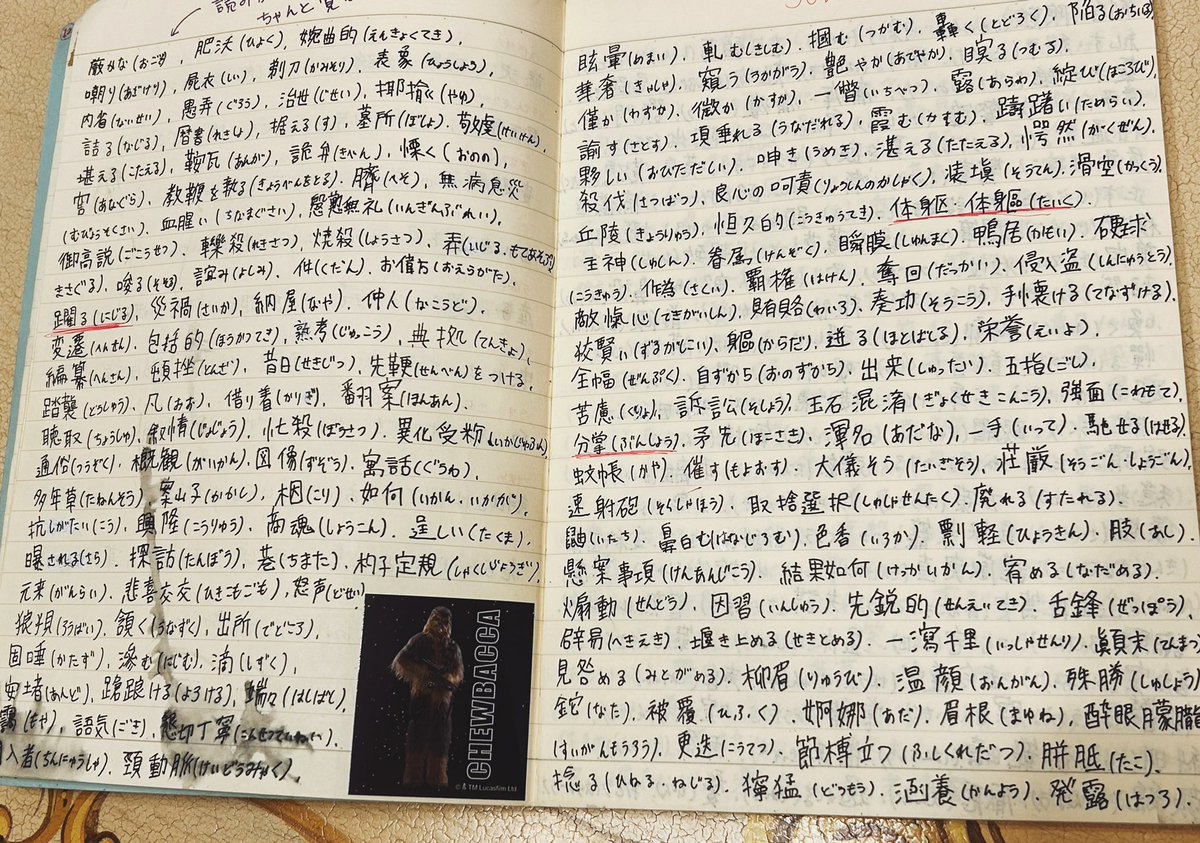 ちゃんと覚
厳かな(おごそ)、肥沃(ひよく)、婉曲的(えんきょくてき)、
嘲り(あざけり)、屍衣(しい)、剃刀(かみそり)、表象(ひょうしょう)、
内省(ないせい)、愚弄(ぐろう)、治世(じせい)、揶揄(やゆ)、
詰る(なじる)、暦書(れきしょ)、据える(す)、墓所(ぼしょ)、敬虔(けいけん)、
堪える(こたえる)、鞍瓦(あんが)、詭弁(きべん)、慄く(おのの)、
窖(あなぐら)、教鞭を執る(きょうべんをとる)、臍(へそ)、無病息災
(むびょうそくさい)、血腥い(ちなまぐさい)、慇懃無礼(いんぎんぶれい)、
御高説(ごこうせつ)、轢殺(れきさつ)、焼殺(しょうさつ)、弄(いじる、もてあそぶ)
まさぐる)、唆る(そそる)、誼み(よしみ)、件(くだん)、お偉方(おえらがた)、
躙る(にじる)、災禍(さいか)、納屋(なや)、仲人(なこうど)、
変遷(へんせん)、包括的(ほうかつてき)、熟考(じゅっこう)、典拠(てんきょ)、
編纂(へんさん)、頓挫(とんざ)、昔日(せきじつ)、先鞭(せんべん)をつける、
踏襲(とうしゅう)、凡(おお)、借り着(かりぎ)、翻案(ほんあん)、
聴取(ちょうしゅ)、叙情(じょじょう)、忙殺(ぼうさつ)、異化受粉(いかじゅふん)
通俗(つうぞく)、概観(がいかん)、図像(ずぞう)、寓話(ぐうわ)、
多年草(たねんそう)、案山子(かかし)、梱(こり)、如何(いかん・いかが)、
抗しがたい(こう)、興隆(こうりゅう)、商魂(しょうこん)、逞しい(たくま)、
曝される(さら)、探訪(たんぼう)、巷(ちまた)、杓子定規(しゃくしじょうぎ)、
元来(がんらい)、悲喜交交(ひきこもごも)、怒声(どせい)
狼狽(ろうばい)、頷く(うなずく)、出所(でどころ)、
固唾(かたず)、滲む(にじむ)、滴(しずく)、
安堵(あんど)、蹌踉ける(よろける)、端々(はしばし)、
靄(もや)、語気(ごき)、懇切丁寧(こんせつていねい)、
入者(ちんにゅうしゃ)、頚動脈(けいどうみゃく)、
CHEWBACCA
© & TM Lucasfilm Ltd
眩暈(めまい)、軋む(きしむ)、掴む(つかむ)、轟く(とどろく)、陥る(おちいる)
華奢(きゃしゃ)、窺う(うかがう)、艶やか(あでやか)、瞑る(つむる)、
僅か(わずか)、微か(かすか)、一瞥(いちべつ)、露(あらわ)、綻び(ほころび)、
諭す(さとす)、項垂れる(うなだれる)、霞む(かすむ)、躊躇い(ためらい)、
夥しい(おびただしい)、呻き(うめき)、湛える(たたえる)、愕然(がくぜん)、
殺伐(さつばつ)、良心の呵責(りょうしんのかしゃく)、装塡(そうてん)、滑空(かっくう)、
丘陵(きょうりゅう)、恒久的(こうきゅうてき)、体躯・体軀(たいく)、
主神(しゅしん)、眷属(けんぞく)、瞬膜(しゅんまく)、鴨居(かもい)、硬球
(こうきゅう)、作為(さくい)、覇権(はけん)、奪回(だっかい)、侵入盗(しんにゅうとう)、
敵愾心(てきがいしん)、賄賂(わいろ)、奏功(そうこう)、手懐ける(てなずける)、
狡賢い(ずるがしこい)、軀(からだ)、迸る(ほとばしる)、栄誉(えいよ)、
全幅(ぜんぷく)、自ずから(おのずから)、出来(しゅったい)、五指(ごし)、
苦慮(くりょ)、訴訟(そしょう)、玉石混淆(ぎょくせきこんこう)、強面(こわもて)、
分掌(ぶんしょう)、矛先(ほこさき)、渾名(あだな)、一手(いって)、馳せる(はせる)、
蚊帳(かや)、催す(もよおす)、大儀そう(たいぎそう)、荘厳(そうごん・しょうごん)、
速射砲(そくしゃほう)、取捨選択(しゅしゃせんたく)、廃れる(すたれる)、
鼬(いたち)、鼻白む(はなじろむ)、色香(いろか)、剽軽(ひょうきん)、肢(あし)、
懸案事項(けんあんじこう)、結果如何(けっかいかん)、宥める(なだめる)、
煽動(せんどう)、因習(いんしゅう)、先鋭的(せんえいてき)、舌鋒(ぜっぽう)、
辟易(へきえき)、堰き止める(せきとめる)、一瀉千里(いっしゃせんり)、顛末(てんまつ)
見咎める(みとがめる)、柳眉(りゅうび)、温顔(おんがん)、殊勝(しゅしょう)
鉈(なた)、被覆(ひふく)、婀娜(あだ)、眉根(まゆね)、酔眼朦朧
(すいがんもうろう)、更迭(こうてつ)、節榑立つ(ふしくれだつ)、胼胝(たこ)、
捻る(ひねる・ねじる)、獰猛(どうもう)、涵養(かんよう)、発露(はつろ)、